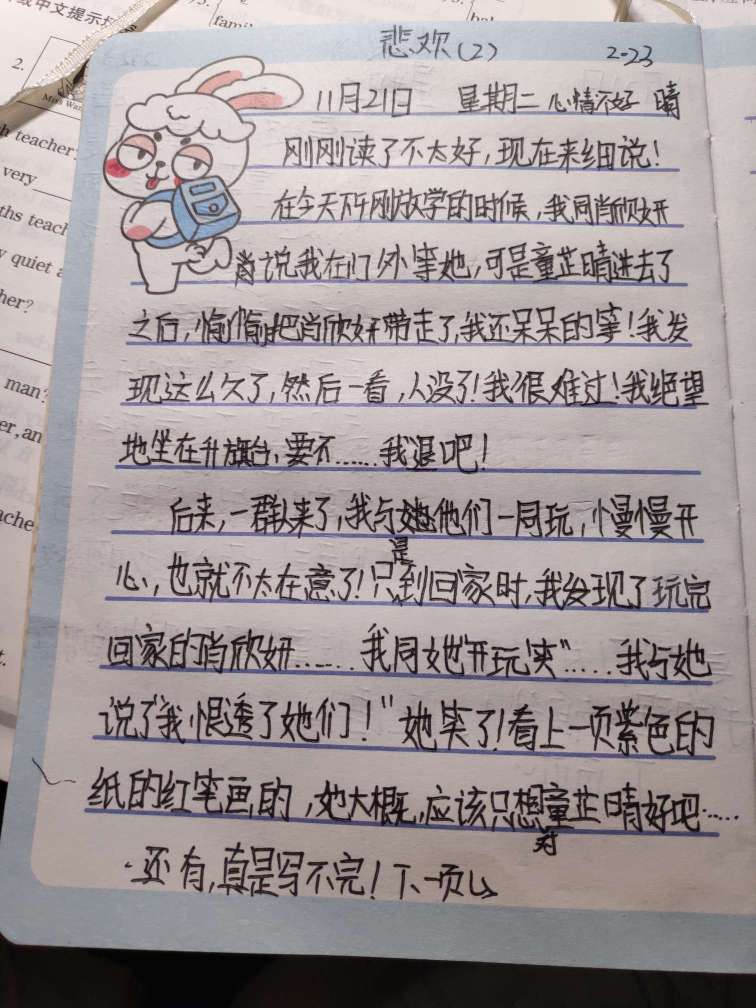 悲欢(2) 2-23
11月21日 星期二 心情不好 晴
刚刚读了不太好,现在来细说!
在今天下午刚放学的时候,我同肖欣妍
肖说我在门外等她,可是童芷晴进去了
之后,悄悄把肖欣妍带走了,我还呆呆的等!我发
现这么久了,然后一看,人没了!我很难过!我绝望
地坐在升旗台,要不……我退吧!
后来,一群人来了,我与她他们一同玩,慢慢开
心,也就不太在意了!只是到回家时,我发现了玩完
回家的肖欣妍……我同她"开玩笑"……我与她
说了"我恨透了她们!"她笑了!看上一页紫色的
纸的红笔画的,她大概,应该只想对童芷晴好吧……
·还有,真是写不完!下一页
2.
famil
teacher
very
ths teach
quiet a
her?
man?
er, an